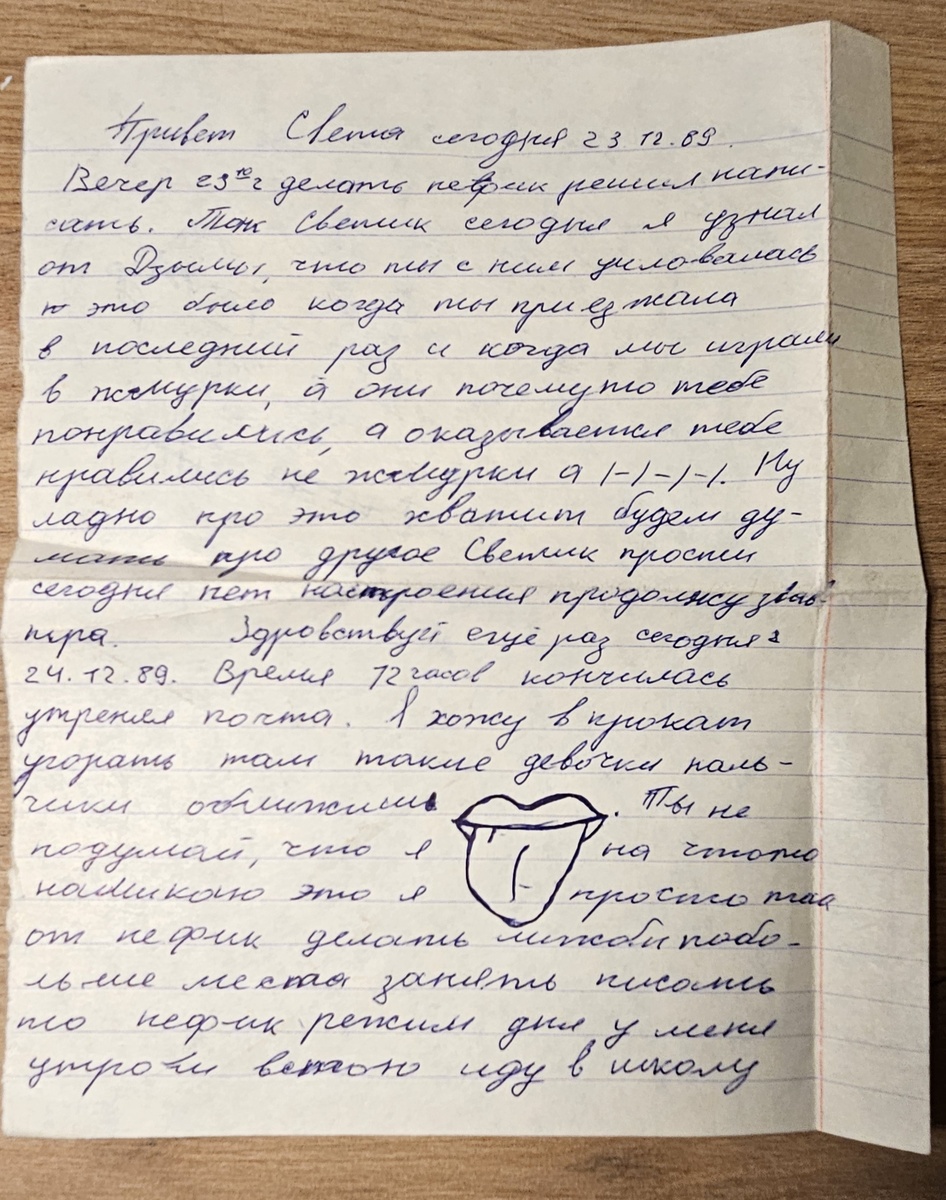 Привет Света сегодня 23.12.89.
Вечер 23 10 г делать нефик решил напи-
сать. Так Светик сегодня я узнал
от Дзымы, что ты с ним циловалась
это было когда ты приезжала
в последний раз и когда мы играли
в жмурки, а они почемуто тебе
понравились, а оказывается тебе
нравились не жмурки а /-/-/-/. Ну
ладно про это хватит будем ду-
мать про другое Светик прости
сегодня нет настроения продолжу зав-
тра. Здравствуй ещё раз сегодня
24.12.89. Время 12 часов кончилась
утреняя почта. Я хожу в прокат
угорать там такие девочки паль-
чики оближишь . Ты не
подумай, что я на чтото
намикаю это я просто так
от нефик делать лижби побо-
льше места занять писать
то нефик режим дня у меня
утром встаю иду в школу